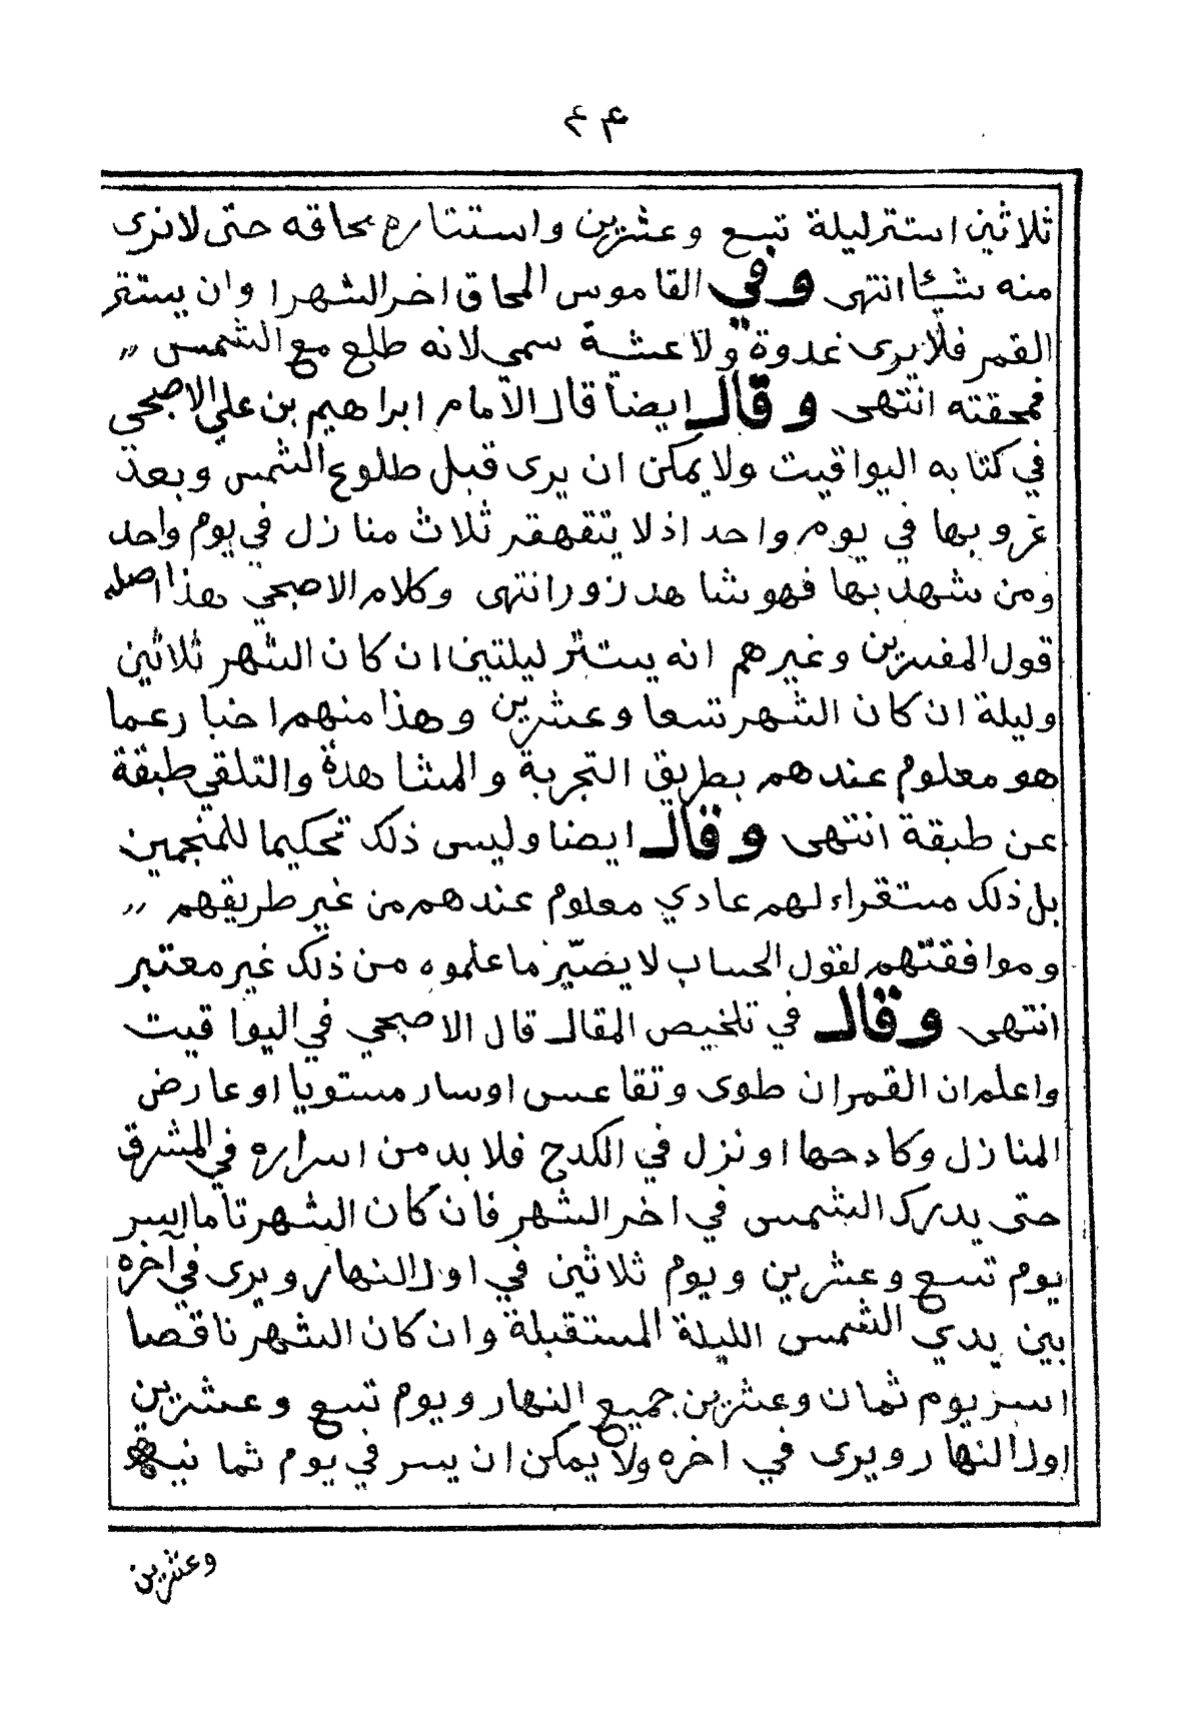 ٤٤
ثلاثين استتر ليلة تسع وعشرين واستتاره محاقه حتى لا نرى
منه شيئا انتهى وفي القاموس المحاق اخر الشهر او ان يستتر
القمر فلا يرى غدوة ولا عشية سمى لانه طلع مع الشمس ,,
فمحقته انتهى وقال ايضا قال الامام ابراهيم بن علي الاصبحي
في كتابه اليواقيت ولا يمكن ان يرى قبل طلوع الشمس وبعد
غروبها في يوم واحد اذ لا يتقهقر ثلاث منازل في يوم واحد
ومن شهد بها فهو شاهد زور انتهى وكلام الاصبحي هذا اصله
قول المفسرين وغيرهم انه يستتر ليلتين ان كان الشهر ثلاثين
وليلة ان كان الشهر تسعا وعشرين وهذا منهم اخبار عما
هو معلوم عندهم بطريق التجربة والمشاهدة والتلقي طبقة
عن طبقة انتهى وقال ايضا وليس ذلك تحكيما للمنجمين
بل ذلك مستقراء لهم عادي معلوم عندهم من غير طريقهم ,,
وموافقتهم لقول الحساب لا يضيّر ما علموه من ذلك غير معتبر
انتهى وقال في تلخيص المقال قال الاصبحي في اليواقيت
واعلم ان القمر ان طوى وتقاعس او سار مستويا او عارض
المنازل وكادحها او نزل في الكدح فلا بد من اسراره في المشرق
حتى يدرك الشمس في اخر الشهر فان كان الشهر تاما اسر
يوم تسع وعشرين ويوم ثلاثين في اول النهار ويرى في آخره
بين يدي الشمس الليلة المستقبلة وان كان الشهر ناقصا
اسر يوم ثمان وعشرين جميع النهار ويوم تسع وعشرين
اول النهار ويرى في اخره ولا يمكن ان يسر في يوم ثمانية
وعشرين